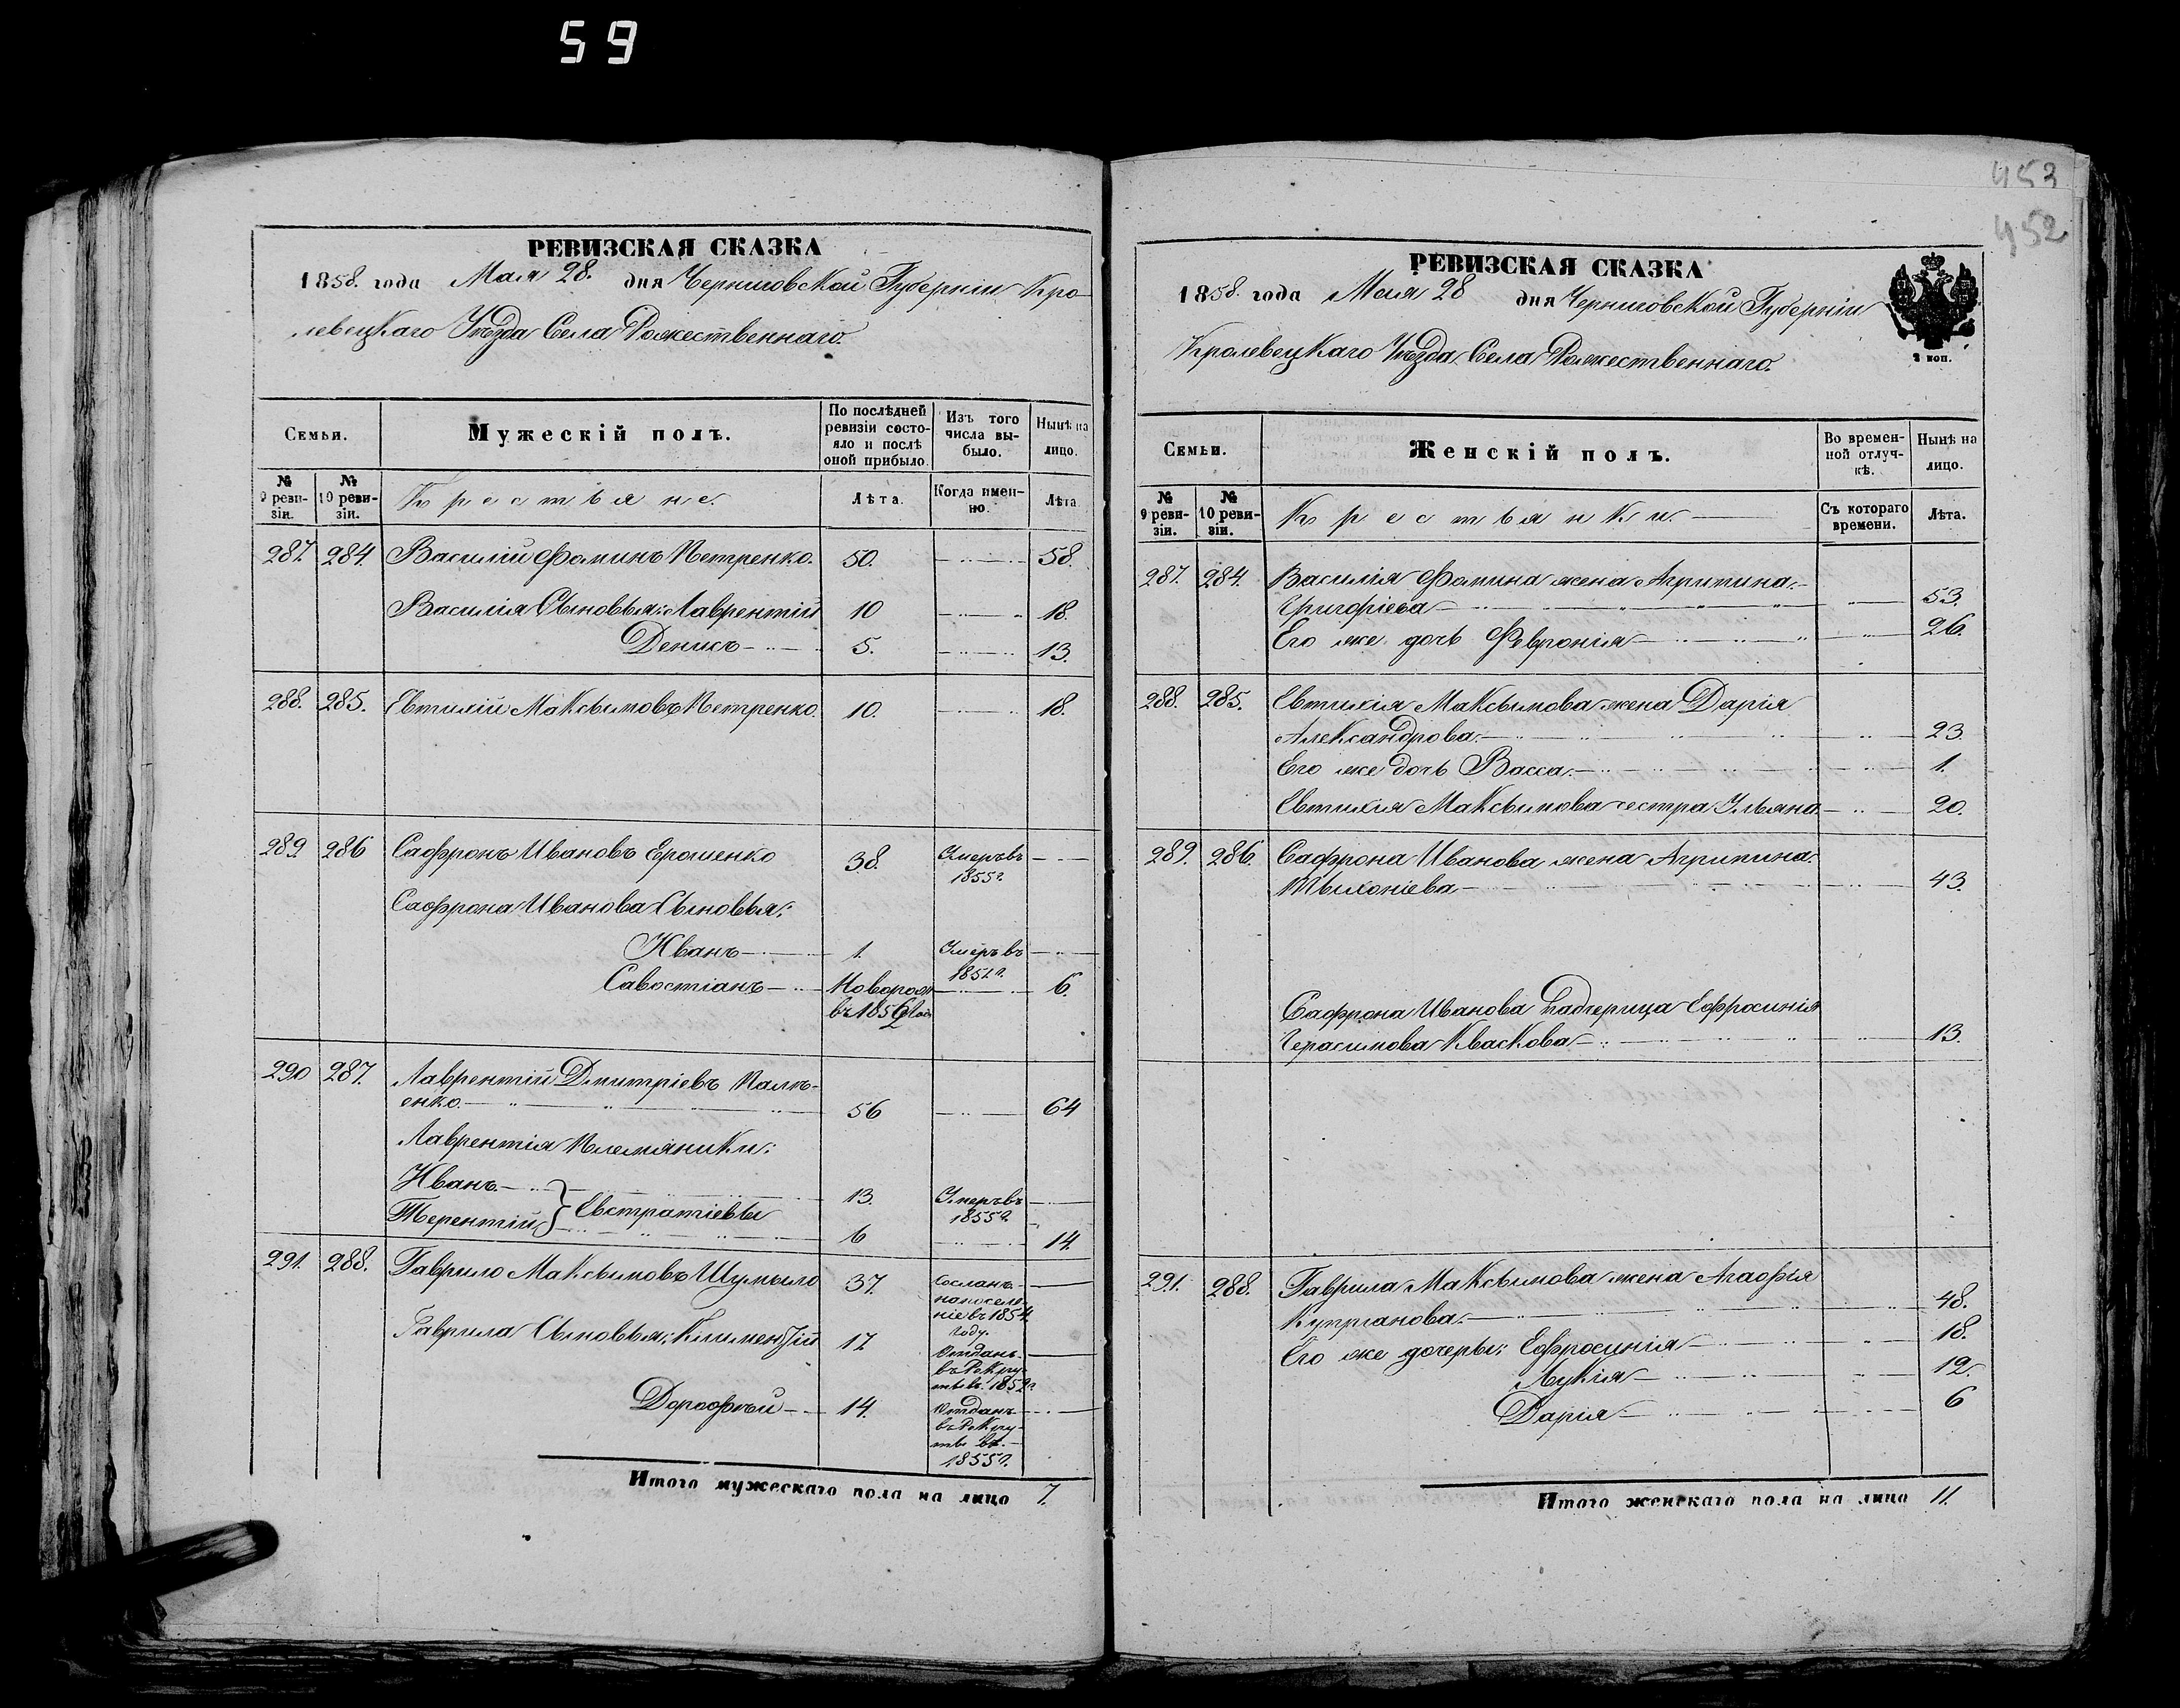 59
453
452
РЕВИЗСКАЯ СКАЗКА
1858. года Мая 28. дня Черниговской Губерніи Кро-
левецкаго Уѣзда Села Рожественнаго.
Семьи.
Мужескій полъ.
По послѣдней ревизіи состо-яло и послѣ оной прибыло.
Изъ того числа вы-было.
Нынѣ на лицо.
№ 9 реви-зіи.
№ 10 реви-зіи.
Крестьяне.
Лѣта.
Когда имен-но.
Лѣта
287. 284. Василій Фоминъ Петренко. 50. 58.
Василія Сыновья: Лаврентій 10 18.
Денисъ 5. 13.
288. 285. Евтихій Максымовъ Петренко. 10. 18.
289. 286 Сафронъ Ивановъ Ерошенко 38. Умеръ въ 1855 г.
Сафрона Иванова Сыновья:
Иванъ 1. Умеръ въ 1851 г.
Савостіанъ Новорож 6.
въ 1852 год
290 287. Лаврентій Дмитріевъ Палѣ-
енко. 56 64
Лаврентія Племяники:
Иванъ 13. Умеръ въ 1855 г.
Терентій } Евстратіевы 6 14.
291. 288. Гаврило Максымовъ Шумыло 37. Сосланъ
на поселе-
ніе въ 1854
году.
Гаврила Сыновья: Климентій 17 Отданъ
въ Рекру-
ты въ 1852 г
Дорофѣй 14. Отданъ
въ Рекру-
ты въ
1855 г.
Итого мужескаго пола на лицо 7.
РЕВИЗСКАЯ СКАЗКА
1858. года Мая 28 дня Черниговской Губерніи
Кролевецкаго Уѣзда Села Рожественнаго.
2 коп.
Семьи.
Женскій полъ.
Во времен-ной отлуч-кѣ.
Нынѣ на лицо.
№ 9 реви-зіи.
№ 10 реви-зіи.
Крестьянки.
Съ котораго времени.
Лѣта.
287. 284. Василія Фомина жена Агрипина
Григоріева 53.
Его же дочь Февронія 26.
288. 285. Евтихія Максымова жена Дарія
Александрова 23
Его же дочь Васса 1.
Евтихія Максымова сестра Ульяна 20.
289. 286. Сафрона Иванова жена Агрипина
Тыхоніева 43.
Сафрона Иванова Падчерица Ефросинія
Герасимова Кваскова 13.
291. 288. Гаврила Максымова жена Агафія
Купріанова 48.
Его же дочеры: Ефросинія 18.
Лукія 12.
Дарія 6
Итого женскаго пола на лицо 11.